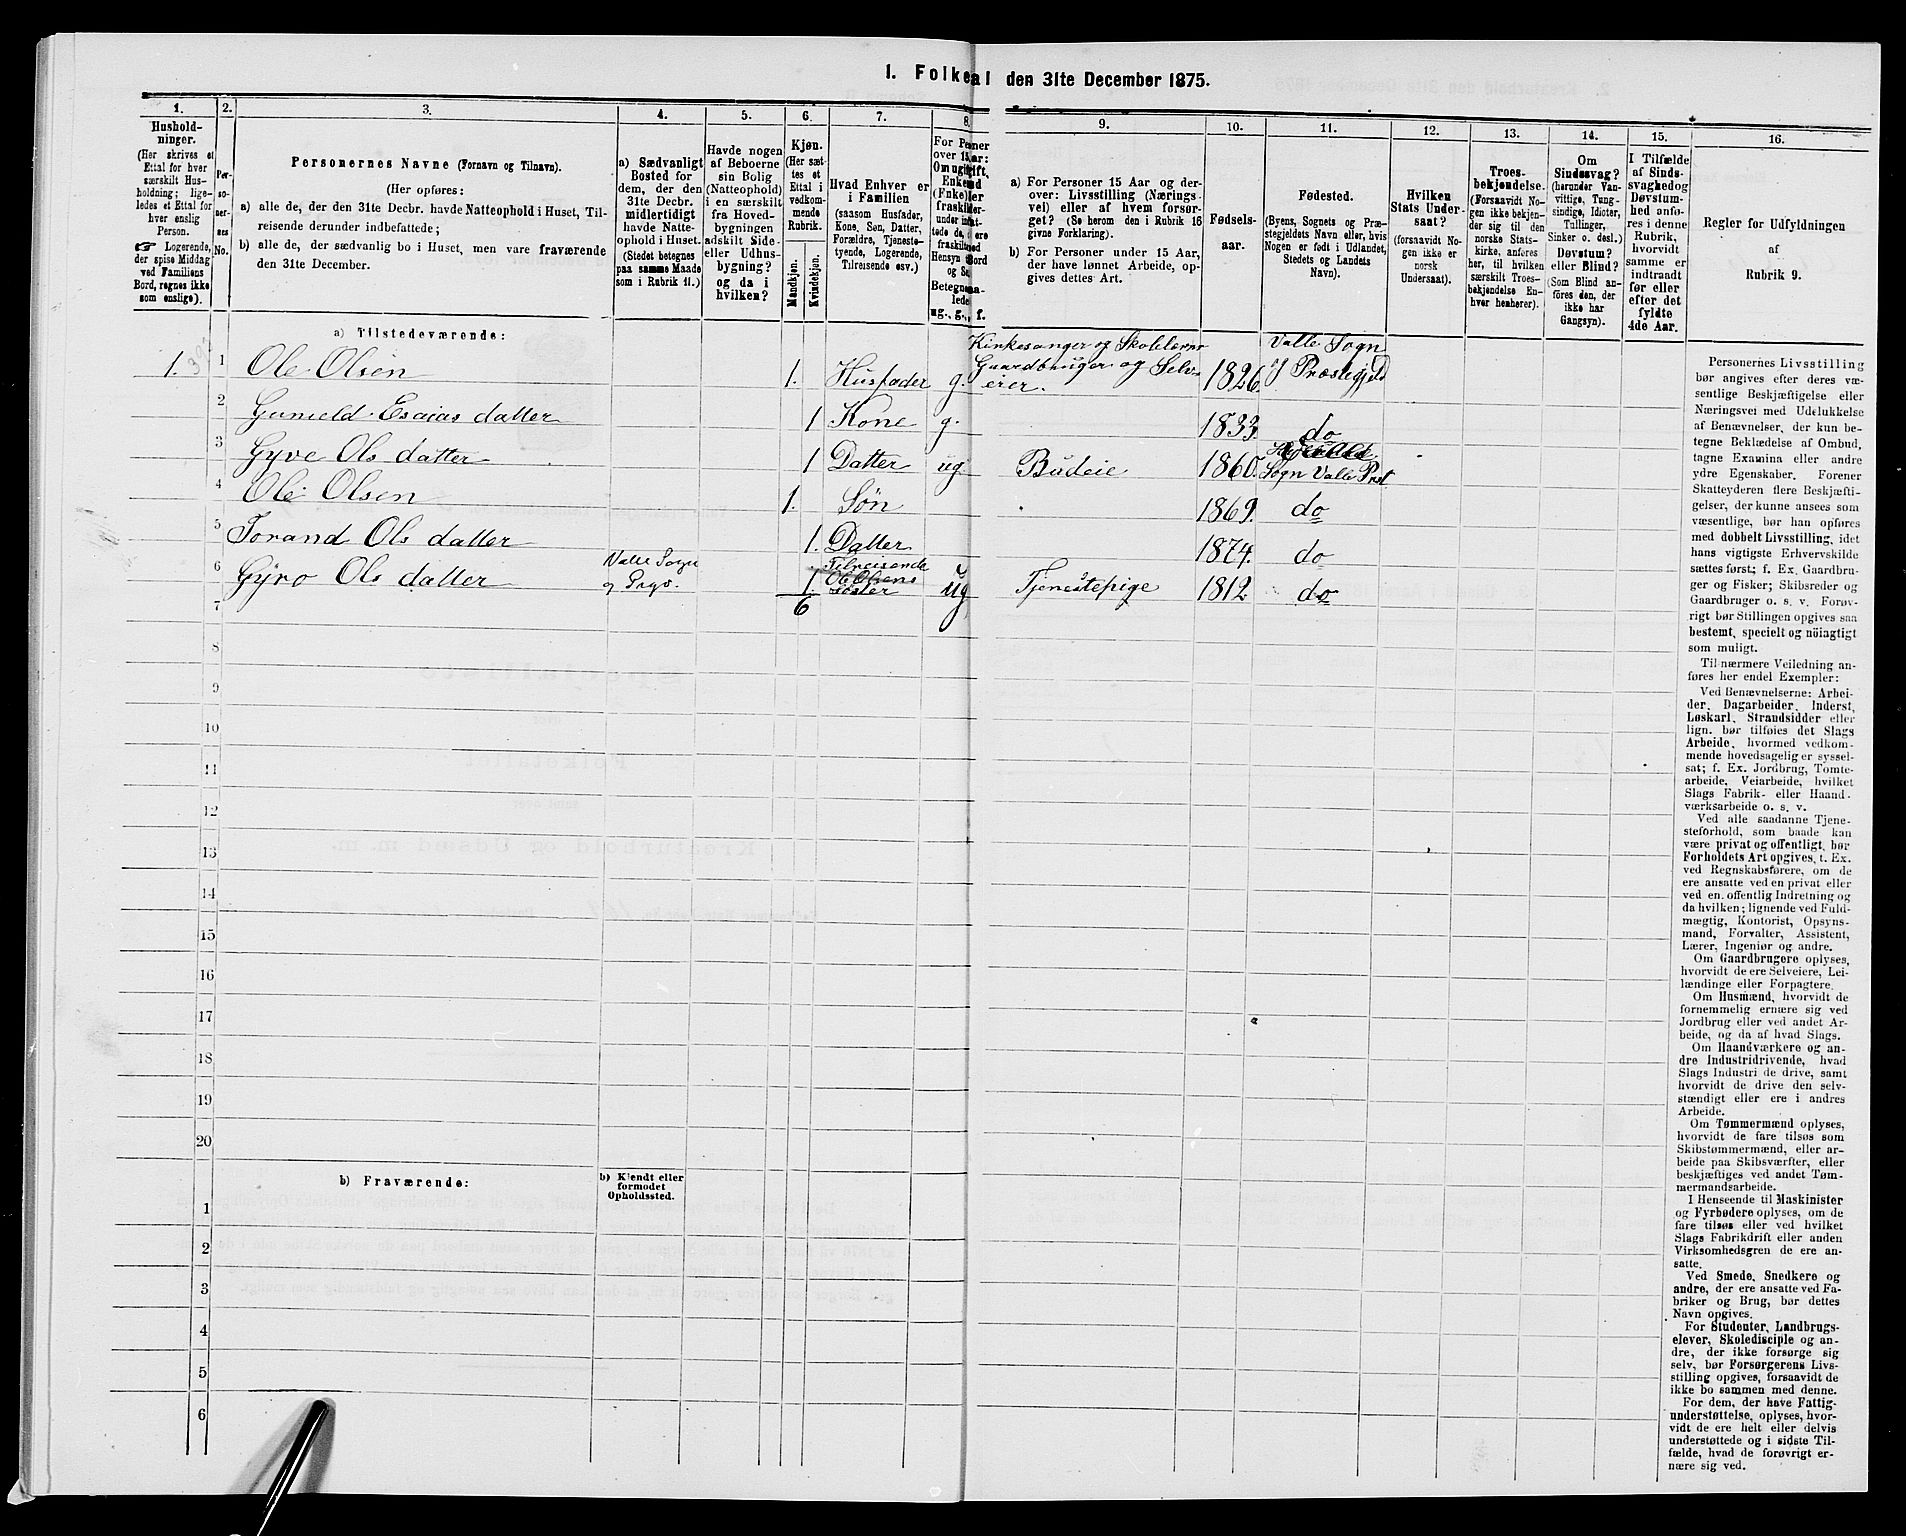 1. Folketal den 31te December 1875.
1.
2.
3.
4.
5.
6.
7.
8.
9.
10.
11.
12.
13.
14.
15.
16.
Hushold-
ninger.
(Her skrives et
Ettal for hver
særskilt Hus-
holdning; lige-
ledes et Ettal for
hver enslig
Person.
☞ Logerende,
der spise Middag
ved Familiens
Bord, regnes ikke
som enslige).
Per-
so-
ner-
nes
No.
Personernes Navne (Fornavn og Tilnavn).
(Her opføres:
a) alle de, der den 31te Decbr. havde Natteophold i Huset, Til-
reisende derunder indbefattede;
b) alle de, der sædvanlig bo i Huset, men vare fraværende
den 31te December.
a) Sædvanligt
Bosted for
dem, der den
31te Decbr.
midlertidigt
havde Natte-
ophold i Huset.
(Stedet betegnes
paa samme Maade
som i Rubrik 11.)
Havde nogen
af Beboerne
sin Bolig
(Natteophold)
i en særskilt
fra Hoved-
bygningen
adskilt Side-
eller Udhus-
bygning?
og da i
hvilken?
Kjøn.
(Her sæt-
tes et
Ettal i
vedkom-
mende
Rubrik.
Mandkjøn.
Kvindekjøn.
Hvad Enhver er
i Familien
(saasom Husfader,
Kone, Søn, Datter,
Forældre, Tjeneste-
tyende, Logerende,
Tilreisende osv.)
a) For Personer 15 Aar og der-
over: Livsstilling (Nærings-
vei) eller af hvem forsør-
get? (Se herom den i Rubrik 16
givne Forklaring).
b) For Personer under 15 Aar,
der have lønnet Arbeide, op-
gives dettes Art.
Fødsels-
aar.
Fødested.
(Byens, Sognets og Præ-
stegjeldets Navn eller, hvis
Nogen er født i Udlandet,
Stedets og Landets
Navn).
Hvilken
Stats Under-
saat?
(forsaavidt No-
gen ikke er
norsk
Undersaat).
Troes-
bekjendelse.
(Forsaavidt No-
gen ikke bekjen-
der sig til den
norske Stats-
kirke, anføres
her, til hvilken
særskilt Troes-
bekjendelse En-
hver henhører).
Om
Sindssvag?
(herunder Van-
vittige, Tung-
sindige, Idioter,
Tullinger,
Sinker o. desl.)
Døvstum?
eller Blind?
(Som Blind an-
føres den, der
ikke har
Gangsyn).
I Tilfælde
af Sinds-
svaghedog
Døvstum-
hed anfø-
res i denne
Rubrik,
hvorvidt
samme er
indtraadt
før eller
efter det
fyldte
4de Aar.
Regler for Udfyldningen
af
Rubrik 9.
a) Tilstedeværende:
1. 1 Ole Olsen 1. Husfader g. Kirkesanger og Skolelærer Gaardbruger og Selveier. 1826. Valle Sogn & Præstegjeld
2 Gunield Esaias datter 1 Kone g. 1833. do
3 Gyve Ols datter 1 Datter ug Budeie 1860. Sogn Valle Prst
4 Ole Olsen 1. Søn 1869. do
5 Torand Ols datter 1. Datter 1874. do
6 Gyro Ols datter Valle Sogn og Prgs. 1. Tilreisende Ole Olsens Søster ug Tjenestepige 1812 do
7 6
8
9
10
11
12
13
14
15
16
17
18
19
20
b) Fraværende:
b) Kjendt eller
formodet
Opholdssted.
1
2
3
4
5
6
Personernes Livsstilling
bør angives efter deres væ-
sentlige Beskjæftigelse eller
Næringsvei med Udelukkelse
af Benævnelser, der kun be-
tegne Beklædelse af Ombud,
tagne Examina eller andre
ydre Egenskaber. Forener
Skatteyderen flere Beskjæfti-
gelser, der kunne ansees som
væsentlige, bør han opføres
med dobbelt Livsstilling, idet
hans vigtigste Erhvervskilde
sættes først; f. Ex. Gaardbru-
ger og Fisker; Skibsreder og
Gaardbruger o. s. v. Forøv-
rigt bør Stillingen opgives saa
bestemt, specielt og nöiagtigt
som muligt.
Til nærmere Veiledning an-
føres her endel Exempler:
Ved Benævnelserne: Arbei-
der, Dagarbeider, Inderst,
Løskarl, Strandsidder eller
lign. bør tilføies det Slags
Arbeide, hvormed vedkom-
mende hovedsagelig er syssel-
sat; f. Ex. Jordbrug, Tomte-
arbeide, Veiarbeide, hvilket
Slags Fabrik- eller Haand-
værksarbeide o. s. v.
Ved alle saadanne Tjene-
steforhold, som baade kan
være privat og offentligt, bør
Forholdets Art opgives, t. Ex.
ved Regnskabsførere, om de
ere ansatte ved en privat eller
ved en offentlig Indretning og
da hvilken; lignende ved Fuld-
mægtig, Kontorist, Opsyns-
mand, Forvalter, Assistent,
Lærer, Ingeniør og andre.
Om Gaardbrugere oplyses,
hvorvidt de ere Selveiere, Lei-
lændinge eller Forpagtere.
Om Husmænd, hvorvidt de
fornemmelig ernære sig ved
Jordbrug eller ved andet Ar-
beide, og da af hvad Slags.
Om Haandværkere og an-
dre Industridrivende, hvad
Slags Industri de drive, samt
hvorvidt de drive den selv-
stændigt eller ere i andres
Arbeide.
Om Tømmermænd oplyses,
hvorvidt de fare tilsøs som
Skibstømmermænd, eller ar-
beide paa Skibsværfter, eller
beskjæftiges ved andet Tøm-
mermandsarbeide.
I Henseende til Maskinister
og Fyrbødere oplyses, om de
fare tilsøs eller ved hvilket
Slags Fabrikdrift eller anden
Virksomhedsgren de ere an-
satte.
Ved Smede, Snedkere og
andre, der ere ansatte ved Fa-
briker og Brug, bør dettes
Navn opgives.
For Studenter, Landbrugs-
elever, Skoledisciple og an-
dre, der ikke forsørge sig
selv, bør Forsørgerens Livs-
stilling opgives, forsaavidt de
ikke bo sammen med denne.
For dem, der have Fattig-
understøttelse, oplyses, hvor-
vidt de ere helt eller delvis
understøttede og i sidste Til-
fælde, hvad de forøvrigt er-
nære sig ved.